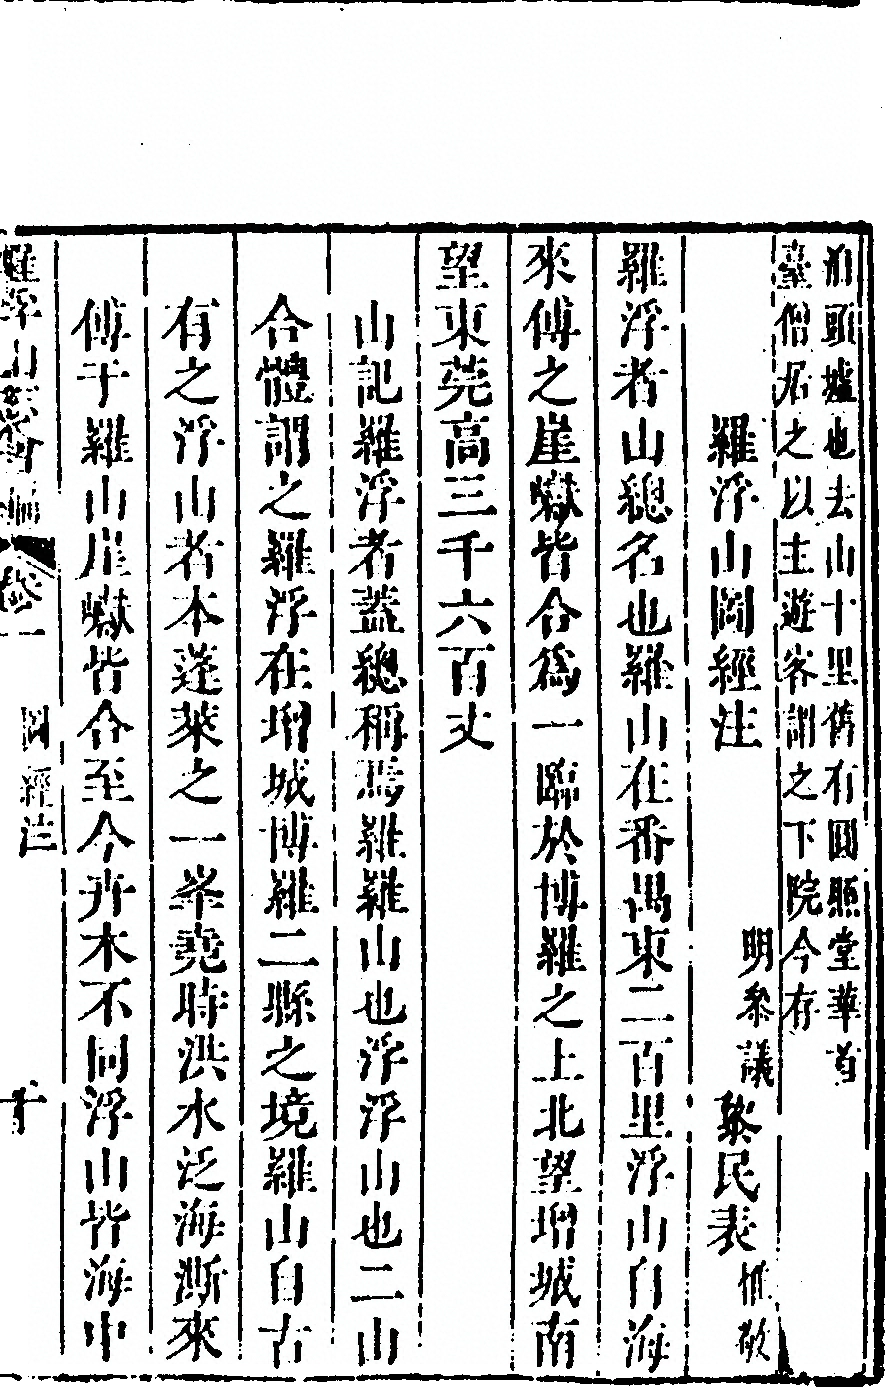 泊頭墟也去山十里舊有圓照堂華首
臺僧居之以主遊客謂之下院今存
羅浮山圖經注 明參議黎民表惟敬
羅浮者山總名也羅山在番禺東二百里浮山自海
來傅之崖巘皆合爲一臨於博羅之上北望增城南
望東莞高三千六百丈
山記羅浮者蓋總稱焉羅羅山也浮浮山也二山
合體謂之羅浮在增城博羅二縣之境羅山自古
有之浮山者本蓬萊之一峯堯時洪水泛海漸來
傅于羅山崖巘皆合至今卉木不同浮山皆海中
羅浮山志會編 卷一 圖經注 十